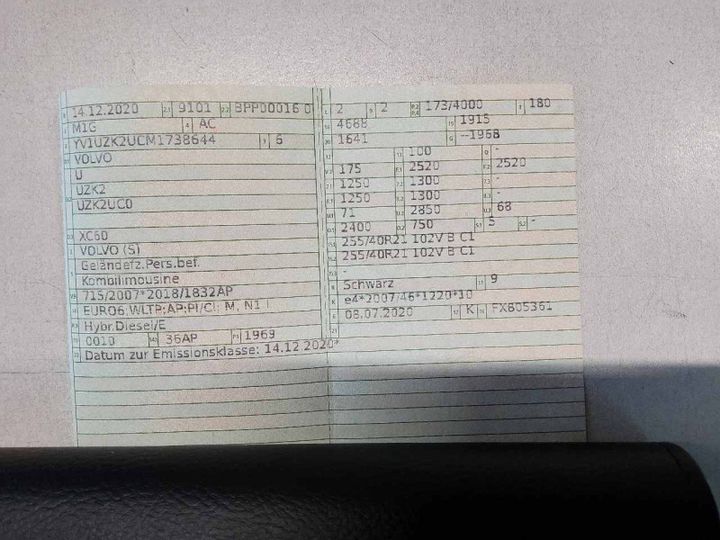 14.12.2020 9101 BPP00016 0
M1G AC
YV1UZK2UCM1738644 6
VOLVO
U
UZK2
UZK2UC0
XC60
VOLVO (S)
Geländefz.Pers.bef.
Kombilimousine
715/2007*2018/1832AP
EURO6;WLTP;AP;PI/CI; M, N1 I
Hybr.Diesel/E
0010 36AP 1969
Datum zur Emissionsklasse: 14.12.2020*
2 2 173/4000 180
4688 1915
1641 --1968
100 -
175 2520 2520
1250 1300 -
1250 1300 -
71 2850 68
2400 750 5 -
255/40R21 102V B C1
255/40R21 102V B C1
-
Schwarz 9
e4*2007/46*1220*10
08.07.2020 K FX805361